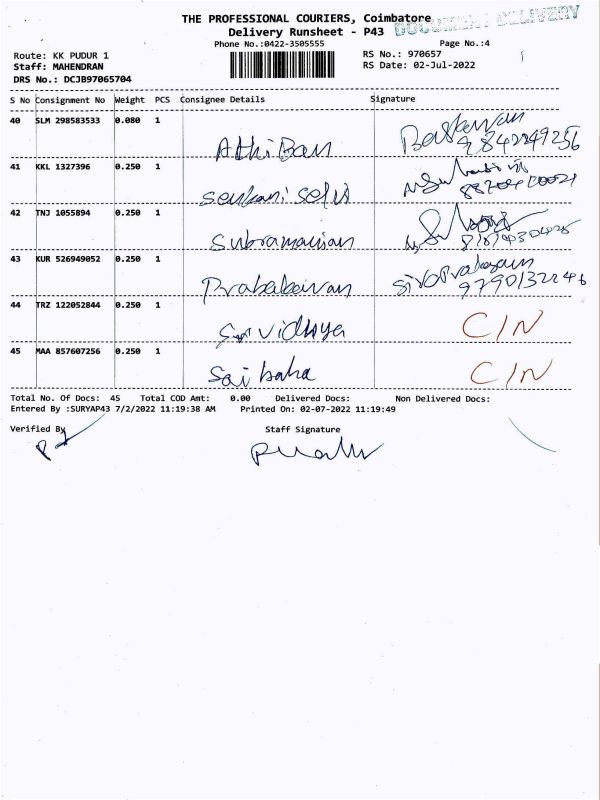 THE PROFESSIONAL COURIERS, Coimbatore
DOCUMENT DELIVERY
Delivery Runsheet - P43
Phone No.:0422-3505555 Page No.:4
Route: KK PUDUR 1 RS No.: 970657
Staff: MAHENDRAN RS Date: 02-Jul-2022
DRS No.: DCJB97065704
S No Consignment No Weight PCS Consignee Details Signature
40 SLM 298583533 0.080 1
AthiBan Baskaran
9842249256
41 KKL 1327396 0.250 1
42 TNJ 1055894 0.250 1
Subramanian
43 KUR 526949052 0.250 1
Prabakaran
9790132246
44 TRZ 122052844 0.250 1
Sri vidhya C/N
45 MAA 857607256 0.250 1
Sai baba C/N
Total No. Of Docs: 45 Total COD Amt: 0.00 Delivered Docs: Non Delivered Docs:
Entered By :SURYAP43 7/2/2022 11:19:38 AM Printed On: 02-07-2022 11:19:49
Verified By Staff Signature